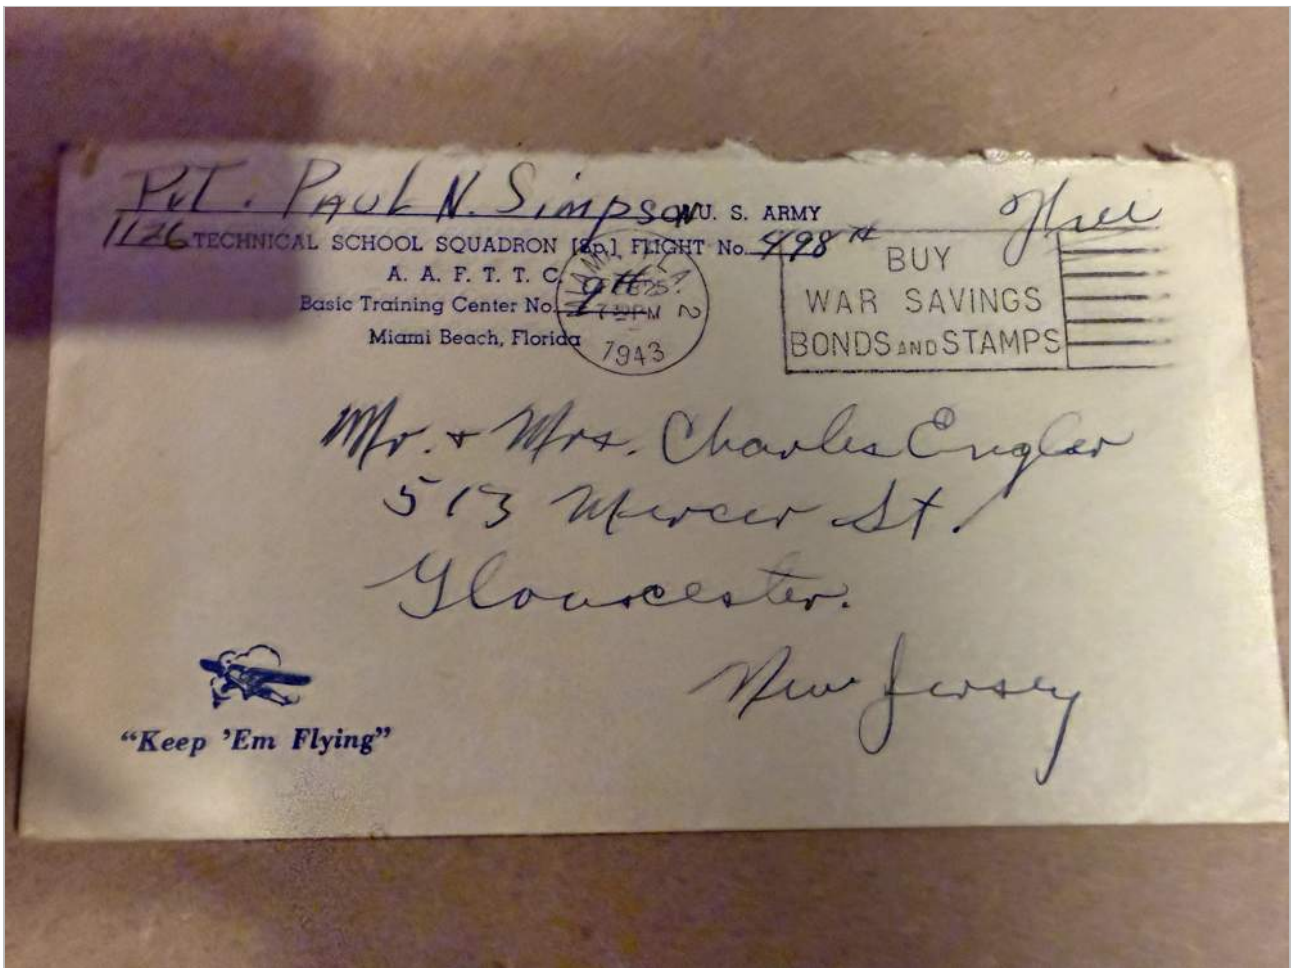 Pvt. Paul N. Simpson U. S. ARMY
Free
1126 TECHNICAL SCHOOL SQUADRON [Sp.] FLIGHT No. 498
A. A. F. T. T. C.
Basic Training Center No. 9th
Miami Beach, Florida
MIAMI, FLA. 2
25
PM
1943
BUY
WAR SAVINGS
BONDS AND STAMPS
Mr. & Mrs. Charles Engler
513 Mercer St.
Gloucester.
New Jersey
“Keep ’Em Flying”